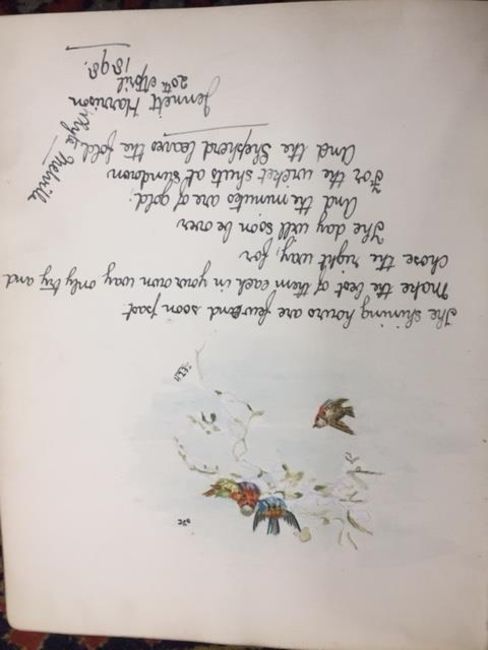 The shining hours are few and soon past
Make the best of them each in your own way only try and
chose the right way, for
The day will soon be over
And the minutes are of gold;
For the wicket shuts at sundown
And the Shepherd leaves the fold.
Jennett Harrison
20th April
1898.
Melvill